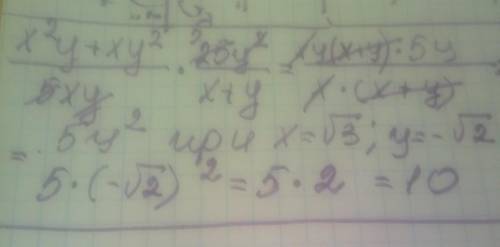 (x²y+xy²)/(5xy) · (25y²)/(x+y) = (xy(x+y)·5y)/(x·(x+y)) =
= 5y² при x=√3; y=-√2
5·(-√2)² = 5·2 = 10